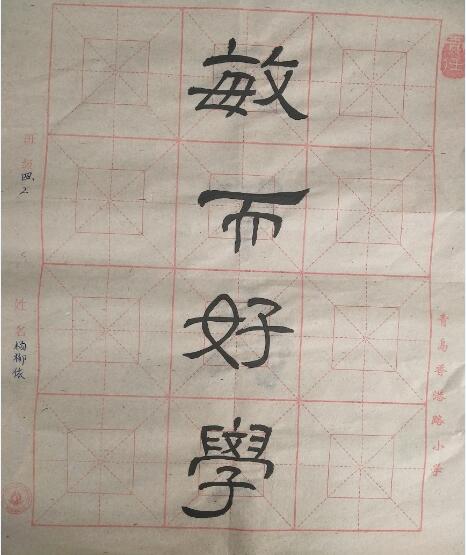 敏而好學
班级 四.2
姓名 杨柳依
青岛香港路小学
责任